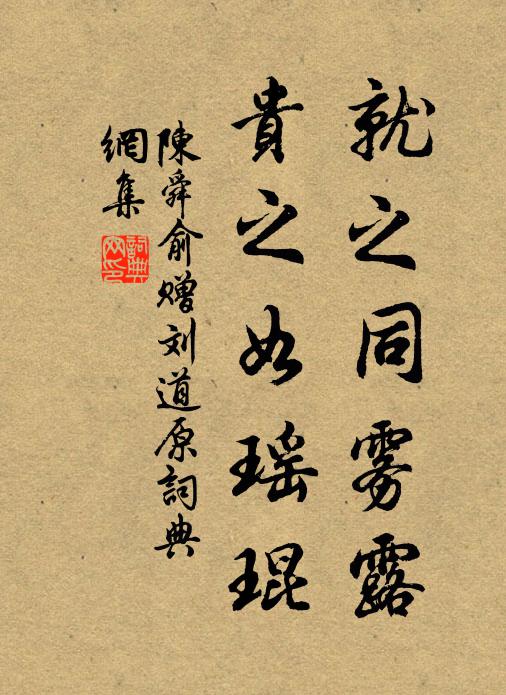 就之同雾露
貴之如瑶琨
陳舜俞赠刘道原詞典
網集
詞典
网印